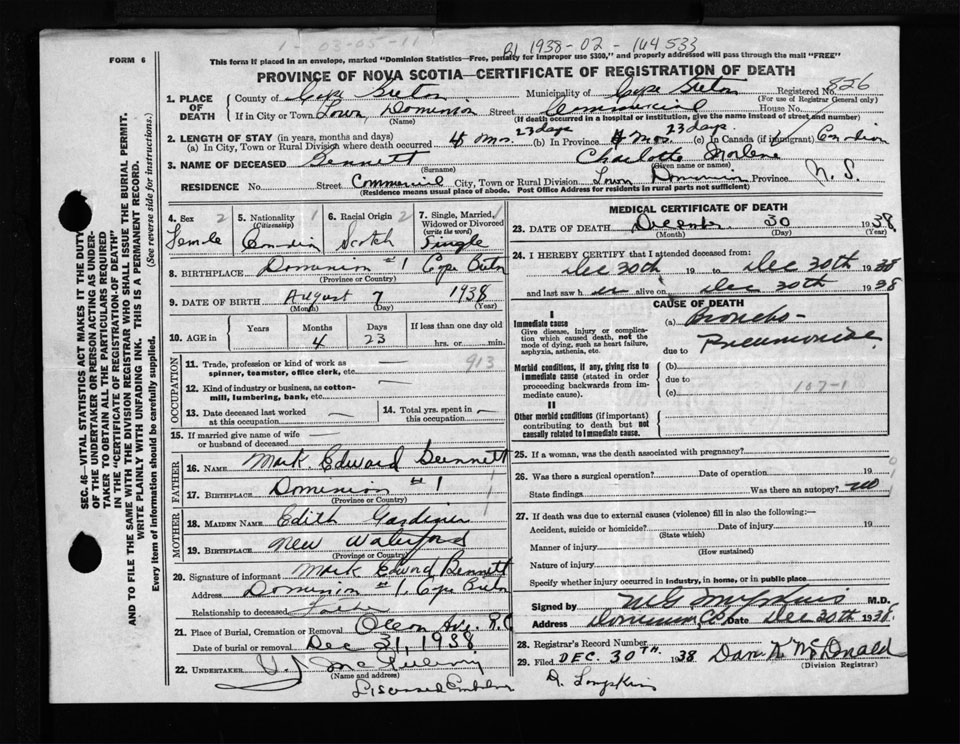 1-03-05-11
1938-02-164533
FORM 6
This form if placed in an envelope, marked "Dominion Statistics—Free, penalty for improper use $300," and properly addressed will pass through the mail "FREE"
PROVINCE OF NOVA SCOTIA—CERTIFICATE OF REGISTRATION OF DEATH
Registered No. 826
(For use of Registrar General only)
1. PLACE OF DEATH
County of Cape Breton Municipality of Cape Breton
If in City or Town Town, Dominion Street Commercial House No.
(Name) (If death occurred in a hospital or institution, give the name instead of street and number)
2. LENGTH OF STAY (in years, months and days)
(a) In City, Town or Rural Division where death occurred 4 mos. 23 days (b) In Province 4 mos. 23 days. (c) In Canada (if immigrant) Canadian
3. NAME OF DECEASED Bennett Charlotte
(Surname) (Given name or names)
RESIDENCE No. Street Commercial City, Town or Rural Division Town Dominion Province N. S.
(Residence means usual place of abode. Post Office Address for residents in rural parts not sufficient)
4. Sex 2
Female
5. Nationality 1
(Citizenship)
Canadian
6. Racial Origin 2
Scotch
7. Single, Married, Widowed or Divorced 1
(write the word)
Single
8. BIRTHPLACE Dominion #1 Cape Breton
(Province or Country)
9. DATE OF BIRTH August 7 1938
(Month) (Day) (Year)
10. AGE in
Years Months Days If less than one day old
4 23 hrs. or min.
OCCUPATION
11. Trade, profession or kind of work as spinner, teamster, office clerk, etc. — 913
12. Kind of industry or business, as cotton-mill, lumbering, bank, etc. —
13. Date deceased last worked at this occupation —
14. Total yrs. spent in this occupation —
15. If married give name of wife or husband of deceased —
FATHER
16. NAME Mark Edward Bennett
17. BIRTHPLACE Dominion #1
(Province or Country)
MOTHER
18. MAIDEN NAME Edith Gardiner
19. BIRTHPLACE New Waterford
(Province or Country)
20. Signature of informant Mark Edward Bennett
Address Dominion #1, Cape Breton
Relationship to deceased Father
21. Place of Burial, Cremation or Removal Ocean Ave. R.C
Date of burial or removal Dec 31, 1938
22. UNDERTAKER
(Name and address)
MEDICAL CERTIFICATE OF DEATH
23. DATE OF DEATH December 30 1938
(Month) (Day) (Year)
24. I HEREBY CERTIFY that I attended deceased from:
Dec 30th 19 to Dec 30th 1938
and last saw her alive on Dec 30th 1938
CAUSE OF DEATH
I
Immediate cause
Give disease, injury or complication which caused death, not the mode of dying, such as heart failure, asphyxia, asthenia, etc.
(a) Broncho-
due to Pneumonia
Morbid conditions, if any, giving rise to immediate cause (stated in order proceeding backwards from immediate cause)
(b)
due to
(c) 107-1
II
Other morbid conditions (if important) contributing to death but not causally related to immediate cause.
25. If a woman, was the death associated with pregnancy?
26. Was there a surgical operation? Date of operation 19
State findings Was there an autopsy? no
27. If death was due to external causes (violence) fill in also the following:—
Accident, suicide or homicide? Date of injury 19
(State which)
Manner of injury
(How sustained)
Nature of injury
Specify whether injury occurred in industry, in home, or in public place
Signed by M.D.
Address Dominion, C.B. Date Dec 30th 1938.
28. Registrar's Record Number
29. Filed DEC. 30TH. 1938 Dan McDonald
(Division Registrar)
SEC. 46—VITAL STATISTICS ACT MAKES IT THE DUTY
OF THE UNDERTAKER OR PERSON ACTING AS UNDER-
TAKER TO OBTAIN ALL THE PARTICULARS REQUIRED
IN THE "CERTIFICATE OF REGISTRATION OF DEATH"
AND TO FILE THE SAME WITH THE DIVISION REGISTRAR WHO SHALL ISSUE THE BURIAL PERMIT.
WRITE PLAINLY WITH UNFADING INK. THIS IS A PERMANENT RECORD.
Every item of information should be carefully supplied. (See reverse side for instructions.)